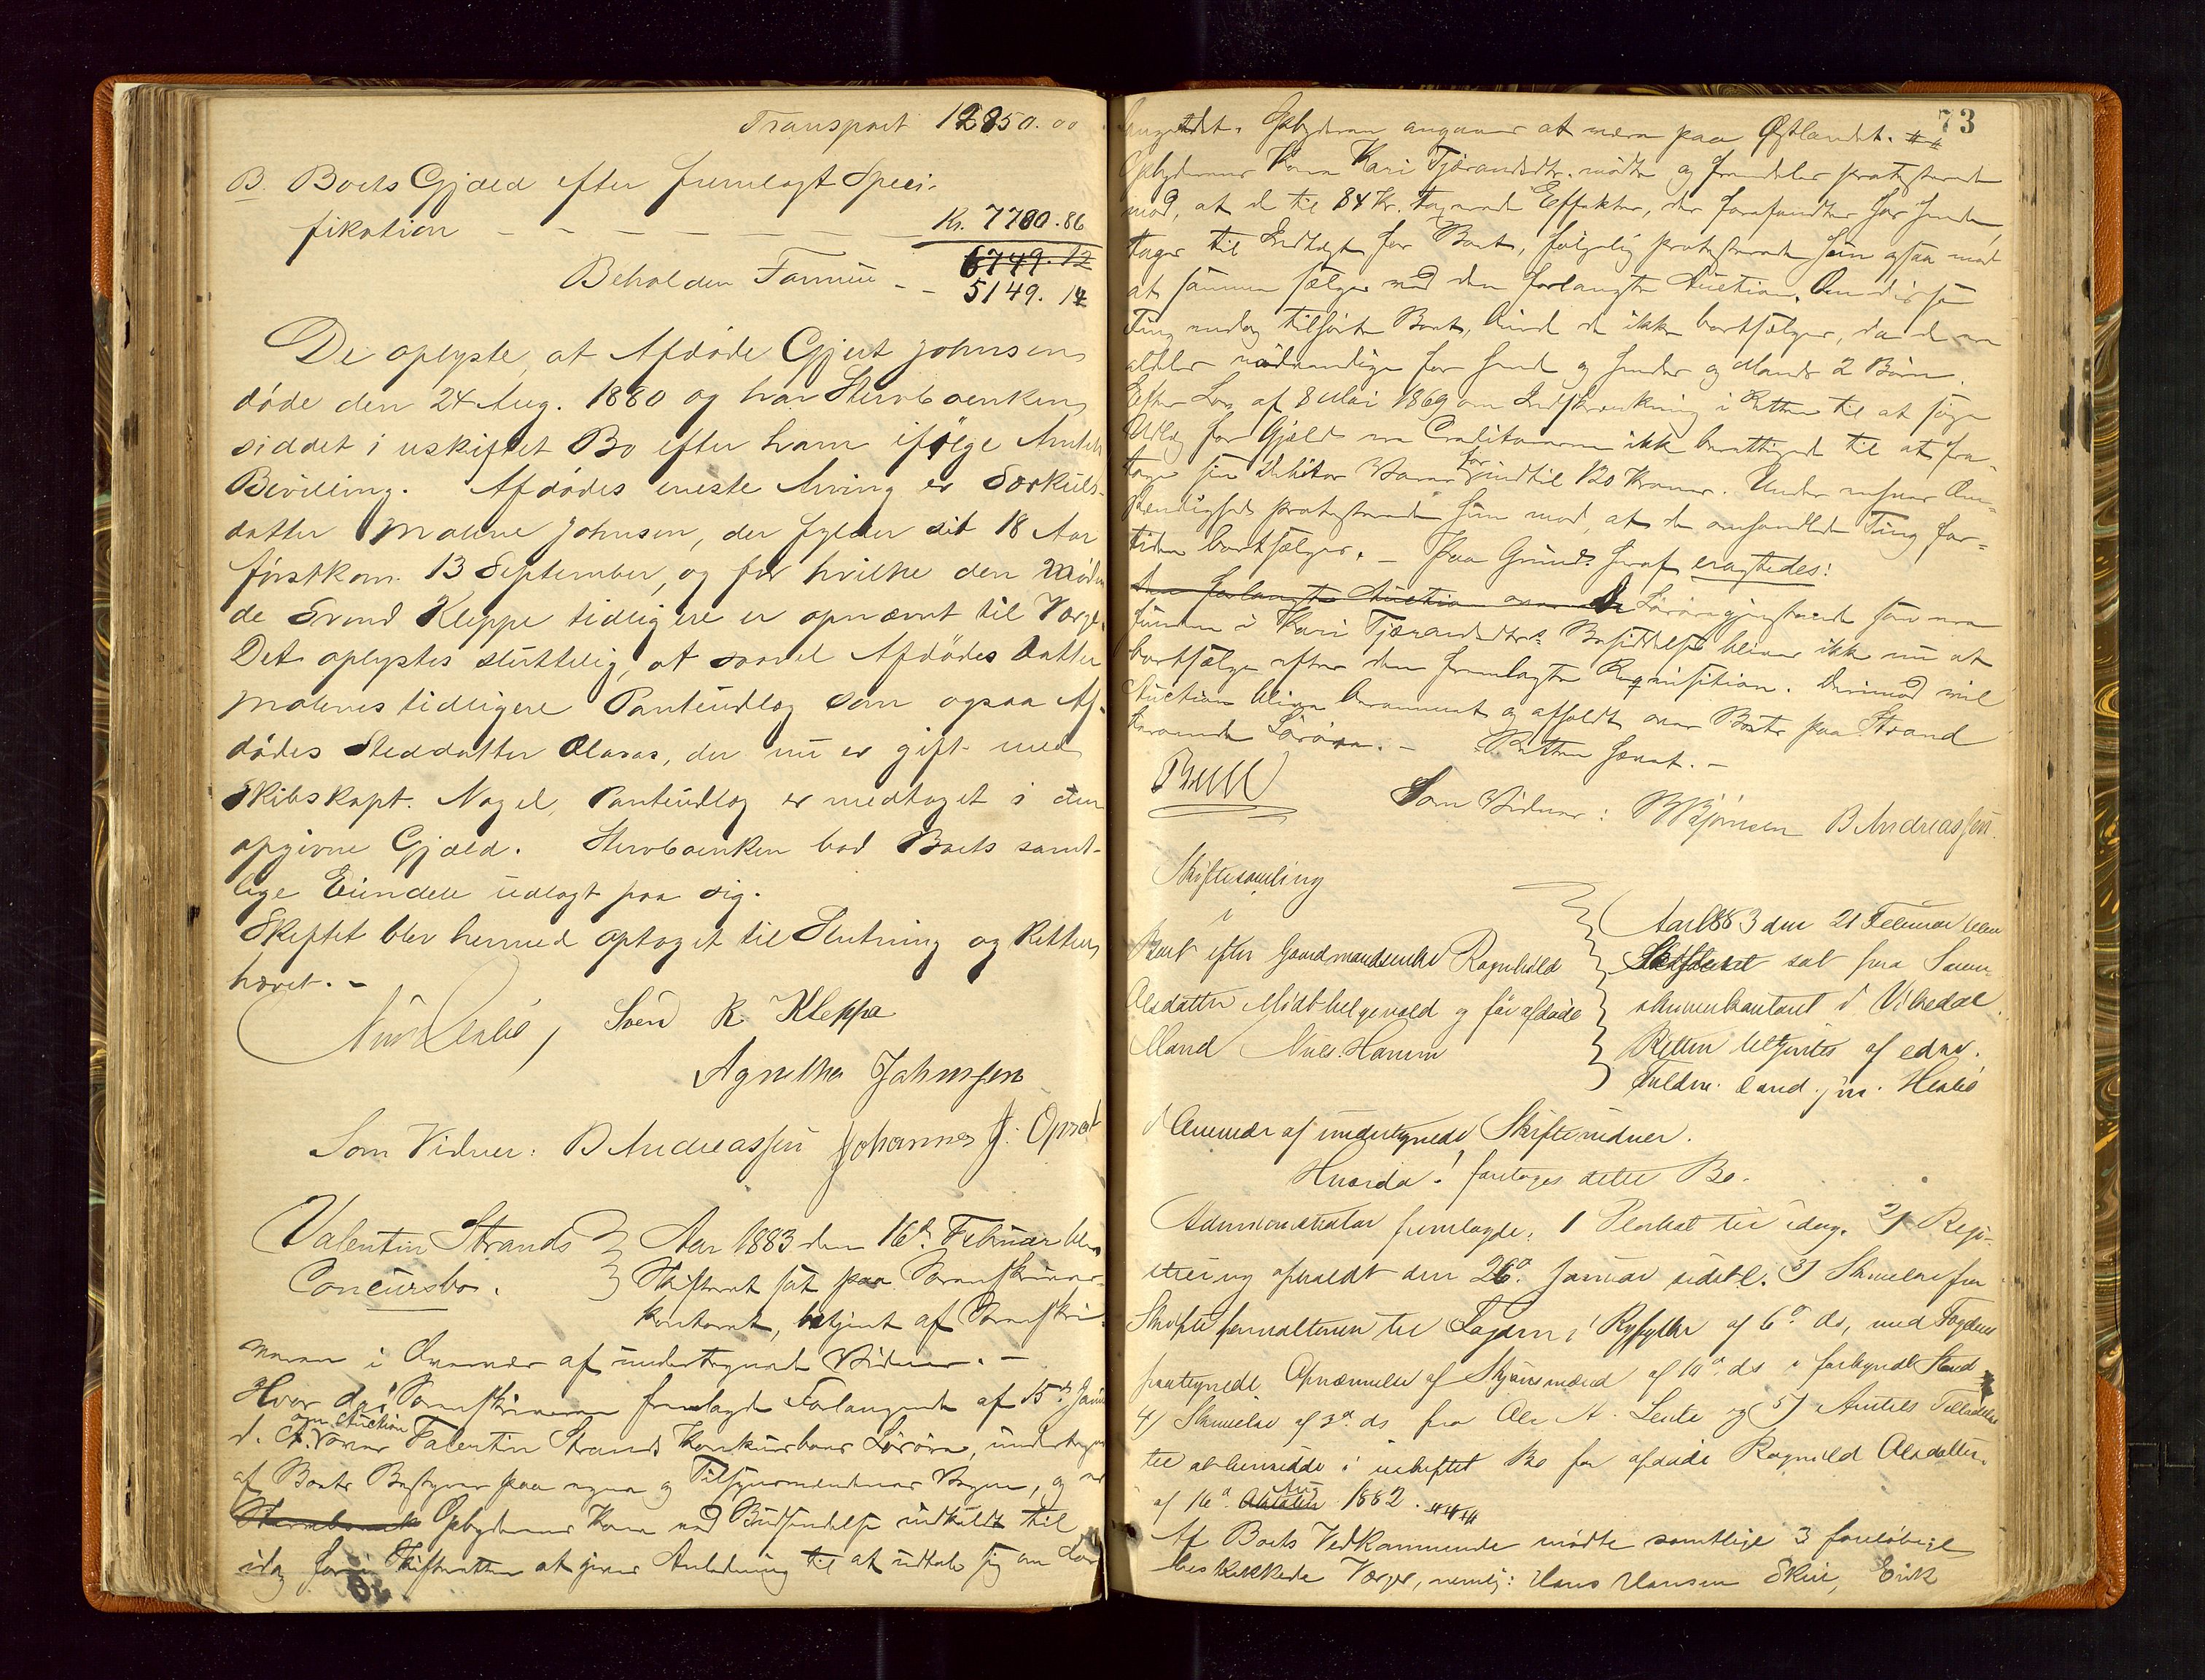 Transport 12850.00
B. Boets Gjæld efter fremlagt Speci-
fikation — — — — — Kr. 7700.86
6749.12
Beholden Formue - - 5149.14
De oplyste, at Afdøde Gjert Johnsen
døde den 24 Aug. 1880 og har Stervboenken
siddet i uskiftet Bo efter ham ifølge Amtets
Bevilling. Afdødes eneste Arving er Særkuls-
datter Malene Johnsen, der fylder sit 18 Aar
førstkom. 13 September, og for hvilke den Møden-
de Svend Kleppe tidligere er opnævnt til Værge.
Det oplystes sluttelig, at saavel Afdødes Datter
Malenes tidligere Panteudlæg som ogsaa Af-
dødes Steddatter Olavas, der nu er gift med
Skibskapt. Nagel, Panteudlæg er medtaget i den
opgivne Gjæld. Stervboenken bad Boets samt-
lige Eiendele udlagt paa sig.
Skiftet blev hermed optaget til Slutning og Retten
hævet. -
Svend R Kleppe
Agnetha Johnsen
Som Vidner: B Andreassen Johannes J. Opsal
Valentin Strands Aar 1883 den 16de Februar blev
Concursbo. Skifteret sat paa Sorenskriver-
kontoret, betjent af Sorenskri-
veren i Overvær af undertegnede Vidner. -
Hvor da: Sorenskriveren fremlagde Forlangende af 15de Januar
d. A. om Auction over Valentin Strands Konkursboes Løsøre, undertegnet
af Boets Bestyrer paa egne og Tilsynsmændenes Vegne, og var
Opbyderens Kone ved Budsendelse indkaldt til
idag for i Skifteretten at gives Anledning til at udtale sig om For-
73
langendet. Opbyderen angaves at være paa Østlandet.
Opbyderens Kone Kari Tjærandsdtr. mødte og fremdeles protesterede
mod, at de til 84 Kr. taxerede Effekter, der forefandtes hos hende,
toges til Indtægt for Boet, følgelig protesterede hun ogsaa mod
at samme sælges ved den forlangte Auction. Om disse
Ting endog tilhørte Boet, burde de ikke bortsælges, da de er
aldeles nødvendige for hende og hendes og Mands 2 Børn.
Efter Lov af 8 Mai 1869 om Indskrænkning i Retten til at søge
Udlæg for Gjæld er Creditorerne ikke berettiget til at fra-
tage sin Debitor Varer for indtil 120 Kroner. Under enhver Om-
stændighed protesterede hun mod, at de omhandlede Ting for-
tiden bortsælges. - Paa Grund heraf eragtedes:
De Løsøregjenstande som ere
fundne i Kari Tjærandsdtrs. Besiddelse bliver ikke nu at
bortsælge efter den fremlagte Requisition. Derimod vil
Auction blive berammet og afholdt over Boets paa Strand
værende Løsøre. - Retten hævet. -
Som Vidner: B Bjørnsen B Andreassen.
Skiftesamling
i
Boet efter Gaardmandsenke Ragnhild
Olsdatter Midthelgevold og før afdøde
Mand Niels Hansen
Aar 1883 den 21 Februar blev
Skifteret sat paa Soren-
skriverkontoret i Vikedal.
Retten betjentes af edsv.
Fuldm. cand. jur.
i Overvær af undertegnede Skiftevidner.
Hvorda: foretoges dette Bo.
Administrator fremlagde: 1 Placat til idag. 2) Regi-
strering afholdt den 26de Januar sidstl. 3) Skrivelse fra
Skifteforvalteren til Fogden i Ryfylke af 6te ds, med Fogdens
paategnede Opnævnelse af Skjønsmænd af 10de ds
4) Skrivelse af 3de ds. fra Ole A. og 5) Amtets Tilladelse
til at hensidde i uskiftet Bo for afdøde Ragnild Olsdatter
af 16de Aug 1882.
Af Boets Vedkommende mødte samtlige 3 foreløbige
beskikkede Værger, nemlig: Hans Hansen Skeie, Erik